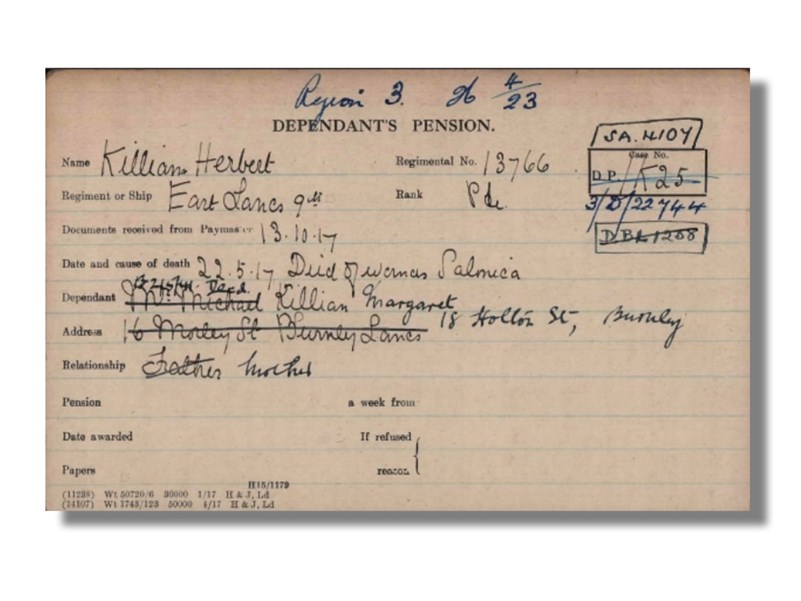 Region 3. 4/23
DEPENDANT'S PENSION.
SA.4107
Name Killian Herbert Regimental No. 13766 Case No.
D.P. K25
Regiment or Ship East Lancs 9th Rank Pte. 3/D/22744
Documents received from Paymaster 13.10.17 DBL1208
Date and cause of death 22.5.17 Died of wounds Salonica
Decd.
Dependant Mr. Michael Killian Margaret
Address 16 Morley St Burnley Lancs 18 Holton St, Burnley
Relationship Father Mother
Pension a week from
Date awarded If refused
Papers reason
H15/1179
(11238) Wt 50720/6 30000 1/17 H & J, Ld
(14107) Wt 1743/123 50000 4/17 H & J, Ld